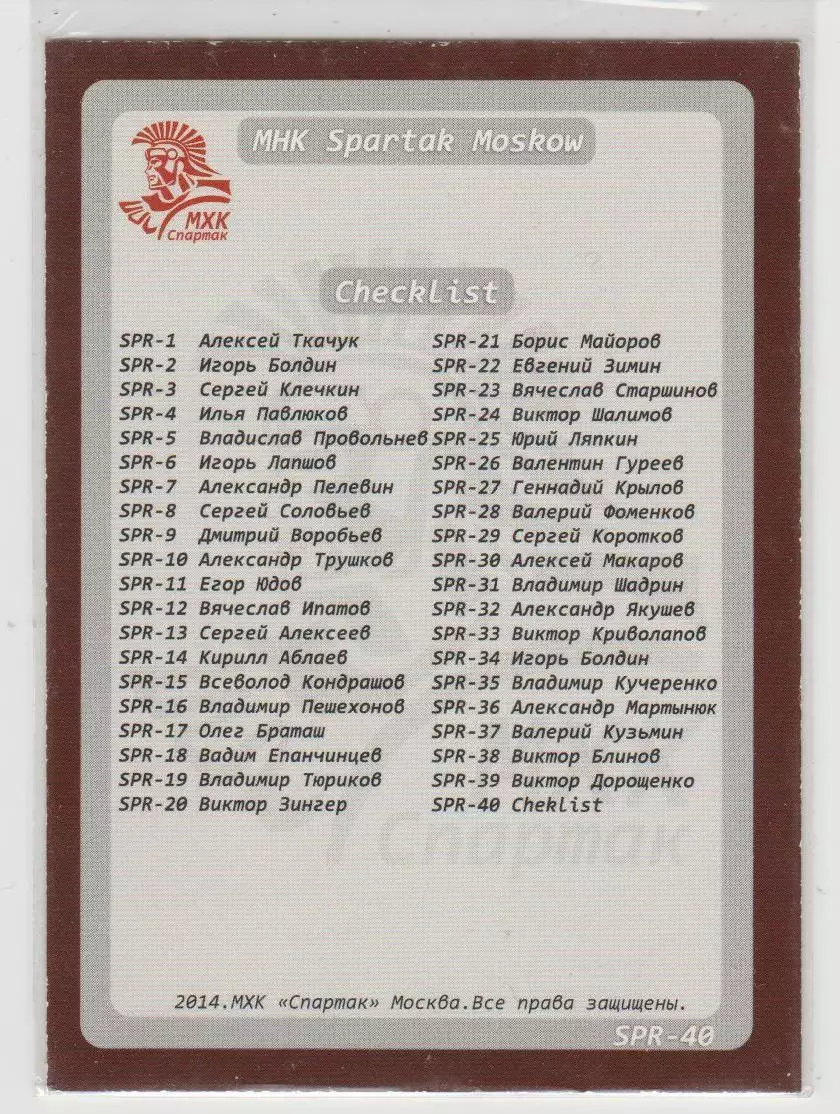 MHK Spartak Moskow
МХК
Спартак
Checklist
SPR-1 Алексей Ткачук
SPR-2 Игорь Болдин
SPR-3 Сергей Клечкин
SPR-4 Илья Павлюков
SPR-5 Владислав Провольнев
SPR-6 Игорь Лапшов
SPR-7 Александр Пелевин
SPR-8 Сергей Соловьев
SPR-9 Дмитрий Воробьев
SPR-10 Александр Трушков
SPR-11 Егор Юдов
SPR-12 Вячеслав Ипатов
SPR-13 Сергей Алексеев
SPR-14 Кирилл Аблаев
SPR-15 Всеволод Кондрашов
SPR-16 Владимир Пешехонов
SPR-17 Олег Браташ
SPR-18 Вадим Епанчинцев
SPR-19 Владимир Тюриков
SPR-20 Виктор Зингер
SPR-21 Борис Майоров
SPR-22 Евгений Зимин
SPR-23 Вячеслав Старшинов
SPR-24 Виктор Шалимов
SPR-25 Юрий Ляпкин
SPR-26 Валентин Гуреев
SPR-27 Геннадий Крылов
SPR-28 Валерий Фоменков
SPR-29 Сергей Коротков
SPR-30 Алексей Макаров
SPR-31 Владимир Шадрин
SPR-32 Александр Якушев
SPR-33 Виктор Криволапов
SPR-34 Игорь Болдин
SPR-35 Владимир Кучеренко
SPR-36 Александр Мартынюк
SPR-37 Валерий Кузьмин
SPR-38 Виктор Блинов
SPR-39 Виктор Дорощенко
SPR-40 Cheklist
Спартак
2014.МХК «Спартак» Москва.Все права защищены.
SPR-40